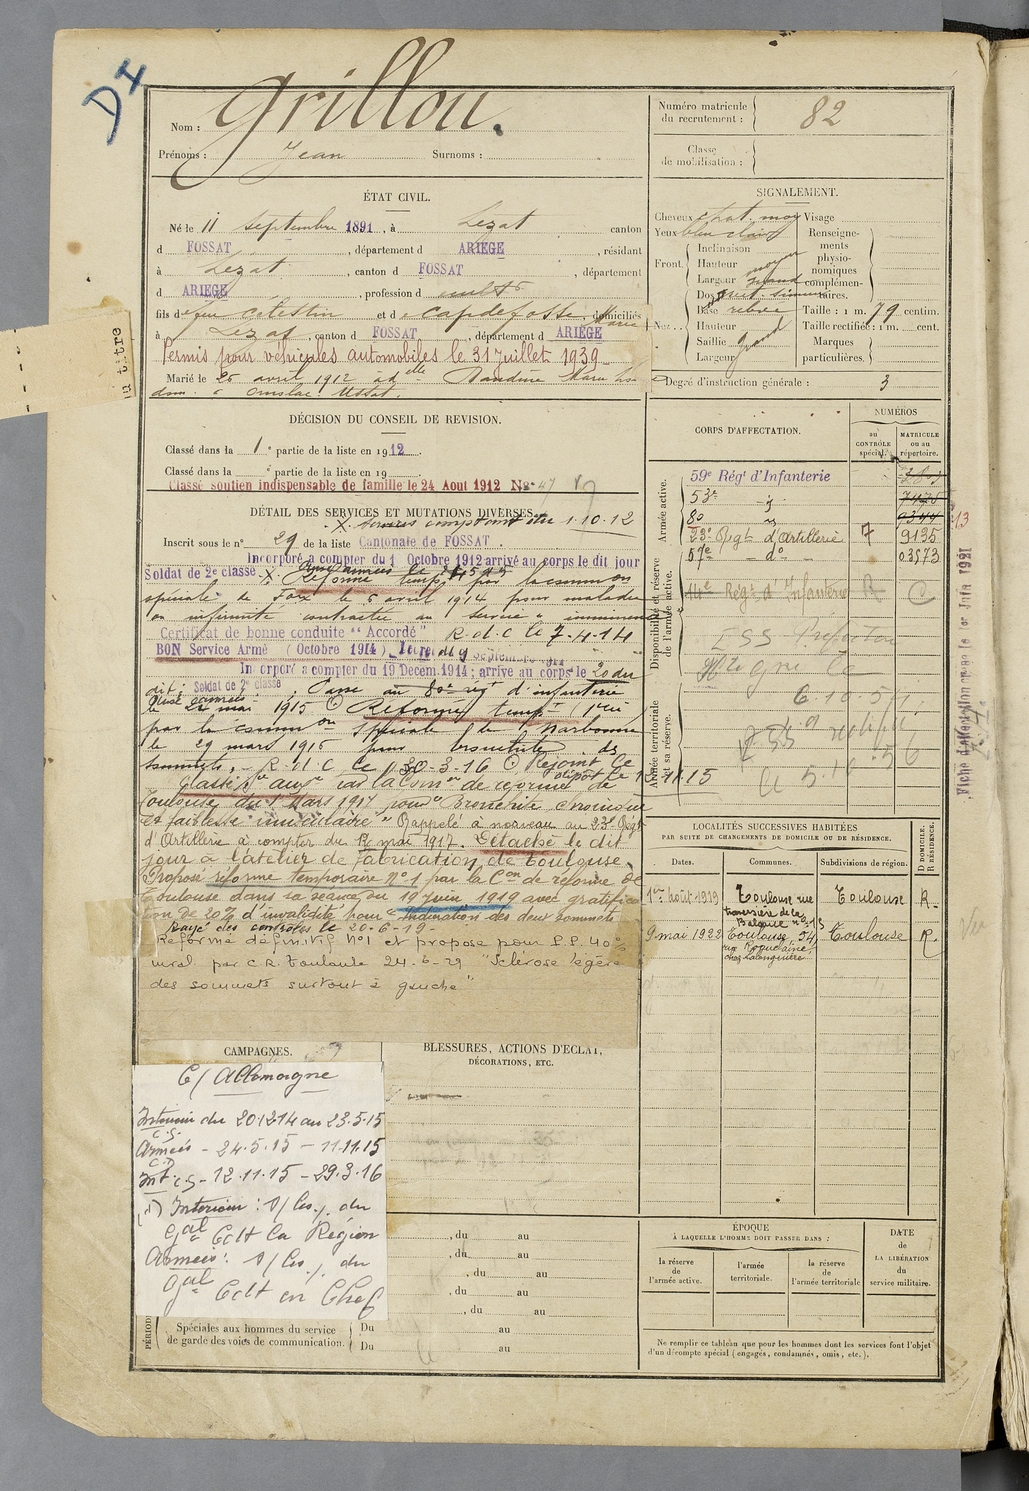 DI
Nom : Grillou.
Prénoms : Jean Surnoms :
Numéro matricule du recrutement : 82
Classe de mobilisation :
ÉTAT CIVIL.
Né le 11 septembre 1891, à Lezat canton
d FOSSAT, département d ARIEGE, résidant
à Lezat, canton d FOSSAT, département
d ARIEGE, profession d cultr
fils de feu Célestin et de Capdefosse Marie, domiciliés
à Lezat, canton d FOSSAT, département d ARIEGE
Permis pour véhicules automobiles le 31 Juillet 1939
Marié le 26 avril 1912 à delle Marie
dom. à Ornolac Ussat.
SIGNALEMENT.
Cheveux chat. moy Visage
Yeux bleu clair
Renseignements physionomiques complémentaires.
Front. Inclinaison
Hauteur moyen
Largeur grand
Nez. Dos
Base relevée
Hauteur
Saillie
Largeur
Taille : 1 m. 79 centim.
Taille rectifiée : 1 m. cent.
Marques particulières.
Degré d'instruction générale : 3
DÉCISION DU CONSEIL DE REVISION.
Classé dans la 1e partie de la liste en 1912.
Classé dans la e partie de la liste en 19
Classé soutien indispensable de famille le 24 Aout 1912 No 47
DÉTAIL DES SERVICES ET MUTATIONS DIVERSES.
X Services comptant du 1.10.12
Inscrit sous le n° 29 de la liste Cantonale de FOSSAT.
Incorporé a compter du 1 Octobre 1912 arrivé au corps le dit jour
Soldat de 2e classe X Réformé temp. par la common
spéciale de Foix le 6 avril 1914 pour maladie
ou infirmité contractée au service
Certificat de bonne conduite "Accordé" R.d.C le 7-4-14
BON Service Armé (Octobre 1914)
Incorporé a compter du 19 Decem. 1914; arrivé au corps le 20 du
dit; Soldat de 2e classe. Passé au 80e régt d'infanterie
le 24 mai 1915 Réformé tempre 1 cat
par la common spéciale de Narbonne
le 29 mars 1916 pour bronchite des
sommets. R.d.C le 30-3-16 Rejoint le dépôt le 12.11.15
Classé Sce auxre par la Comon de réforme de
Toulouse du 1er Mars 1917 pour "Bronchite chronique
et faiblesse musculaire" Rappelé à nouveau au 23e Régt
d'Artillerie à compter du 12 mai 1917. Détaché le dit
jour à l'atelier de Fabrication de Toulouse.
Proposé réforme temporaire N°1 par la Con de réforme de
Toulouse dans sa séance du 19 juin 1919 avec gratifica
tion de 20% d'invalidité pour "induration des deux sommets"
Rayé des contrôles le 20-6-19-
Réformé définitif N°1 et proposé pour P.P. 40%
inval. par C.R. Toulouse 24-6-29 "Sclérose légère
des sommets surtout à gauche"
CORPS D'AFFECTATION.
NUMÉROS
au CONTRÔLE spécial.
MATRICULE ou au répertoire.
Armée active.
59e Régt d'Infanterie
53e - 7425
80 - 9344
23e Régt d'Artillerie 7 9135
57e - d° - 03573
Disponibilité et réserve de l'armée active.
14e Régt d'Infanterie R C
Armée territoriale et sa réserve.
Fiche d'affectation mise le 1er Juin 1921
LOCALITÉS SUCCESSIVES HABITÉES
PAR SUITE DE CHANGEMENTS DE DOMICILE OU DE RÉSIDENCE.
Dates. Communes. Subdivisions de région. D. DOMICILE. R. RÉSIDENCE.
1er Août 1919 Toulouse rue traversière de la Balance n° 13 Toulouse R.
9 mai 1922 Toulouse, 54, rue Roquelaine, chez Lalanguière Toulouse R.
Vu
CAMPAGNES.
C/ Allemagne
Intérieur du 20.12.14 au 23.5.15
C.S.
Armées - 24.5.15 - 11.11.15
C.D
Int. CS - 12.11.15 - 29.3.16
(1) Intérieur : S/ les /. du
Gal Cdt la Région
Armées : S/ les /. du
Gal Cdt en Chef
BLESSURES, ACTIONS D'ÉCLAT,
DÉCORATIONS, ETC.
, du au
, du au
, du au
, du au
, du au
Spéciales aux hommes du service de garde des voies de communication.
Du au
Du au
ÉPOQUE
À LAQUELLE L'HOMME DOIT PASSER DANS :
la réserve de l'armée active.
l'armée territoriale.
la réserve de l'armée territoriale
DATE de LA LIBÉRATION du service militaire.
Ne remplir ce tableau que pour les hommes dont les services font l'objet
d'un décompte spécial (engagés, condamnés, omis, etc.).